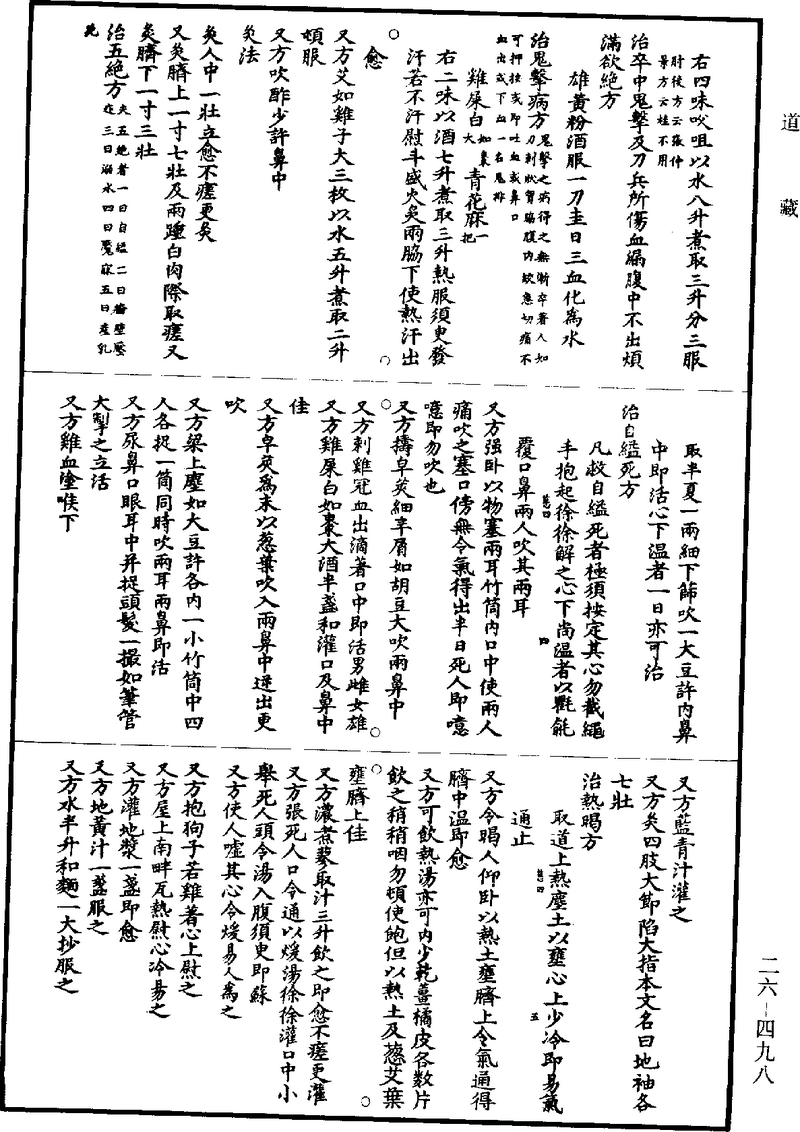 道藏
右四味㕮咀以水八升煮取三升分三服
肘後方云張仲
景方云桂不用
治卒中鬼擊及刀兵所傷血漏腹中不出煩
滿欲絶方
雄黃粉酒服一刀圭日三血化為水
治鬼擊病方鬼擊之病得之無漸卒著人如
刀刺狀胷脇腹内㽲急切痛不
可抑按或即吐血或鼻口
血出或下血一名鬼排
雞屎白如棗大青花麻一把
右二味以酒七升煮取三升熱服須更發
汗若不汗熨斗盛火炙兩脇下使熱汗出
愈
又方艾如雞子大三枚以水五升煮取二升
頓服
又方吹酢少許鼻中
灸法
灸人中一壯立愈不瘥更灸
又灸臍上一寸七壯及兩踵白肉際取瘥又
灸臍下一寸三壯
治五絶方夫五絶者一曰自縊二曰牆壁壓
迮三曰溺水四曰魘寐五曰產乳
絶
取半夏一兩細下篩吹一大豆許内鼻
中即活心下溫者一日亦可治
治自縊死方
凡救自縊死者極須按定其心勿截繩
手抱起徐徐解之心下尚溫者以氍毹
覆口鼻兩人吹其兩耳
又方强卧以物塞兩耳竹筒内口中使兩人
痛吹之塞口傍無令氣得出半日死人即噫
噫即勿吹也
又方擣皁莢細辛屑如胡豆大吹兩鼻中
又方刺雞冠血出滴著口中即活男雌女雄
又方雞屎白如棗大酒半盞和灌口及鼻中
佳
又方皁莢為末以葱葉吹入兩鼻中逆出更
吹
又方梁上塵如大豆許各内一小竹筒中四
人各捉一筒同時吹兩耳兩鼻即活
又方尿鼻口眼耳中并捉頭髮一撮如筆管
大掣之立活
又方雞血塗喉下
又方藍青汁灌之
又方灸四肢大節陷大指本文名曰地袖各
七壯
治熱暍方
取道上熱塵土以壅心上少冷即易氣
通止
又方令暍人仰卧以熱土壅臍上令氣通得
臍中溫即愈
又方可飲熱湯亦可内少乾薑橘皮各數片
飲之稍稍咽勿頓使飽但以熱土及葱艾葉
壅臍上佳
又方濃煮蓼取汁三升飲之即愈不瘥更灌
又方張死人口令通以煖湯徐徐灌口中小
舉死人頭令湯入腹須更即蘇
又方使人噓其心令煖易人為之
又方抱狗子若雞著心上熨之
又方屋上南畔瓦熱熨心冷易之
又方灌地漿一盞即愈
又方地黃汁一盞服之
又方水半升和麵一大抄服之
二六—四九八